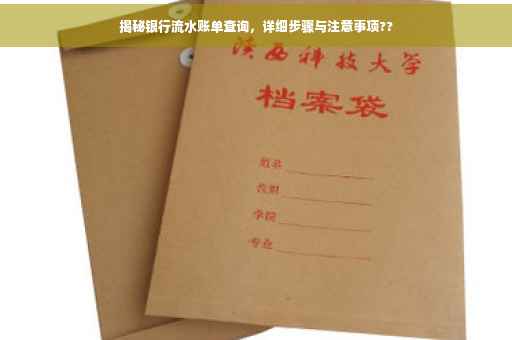 揭秘银行流水账单查询，详细步骤与注意事项??
陕西科技大学
档案袋
姓名
班级
学院
专业